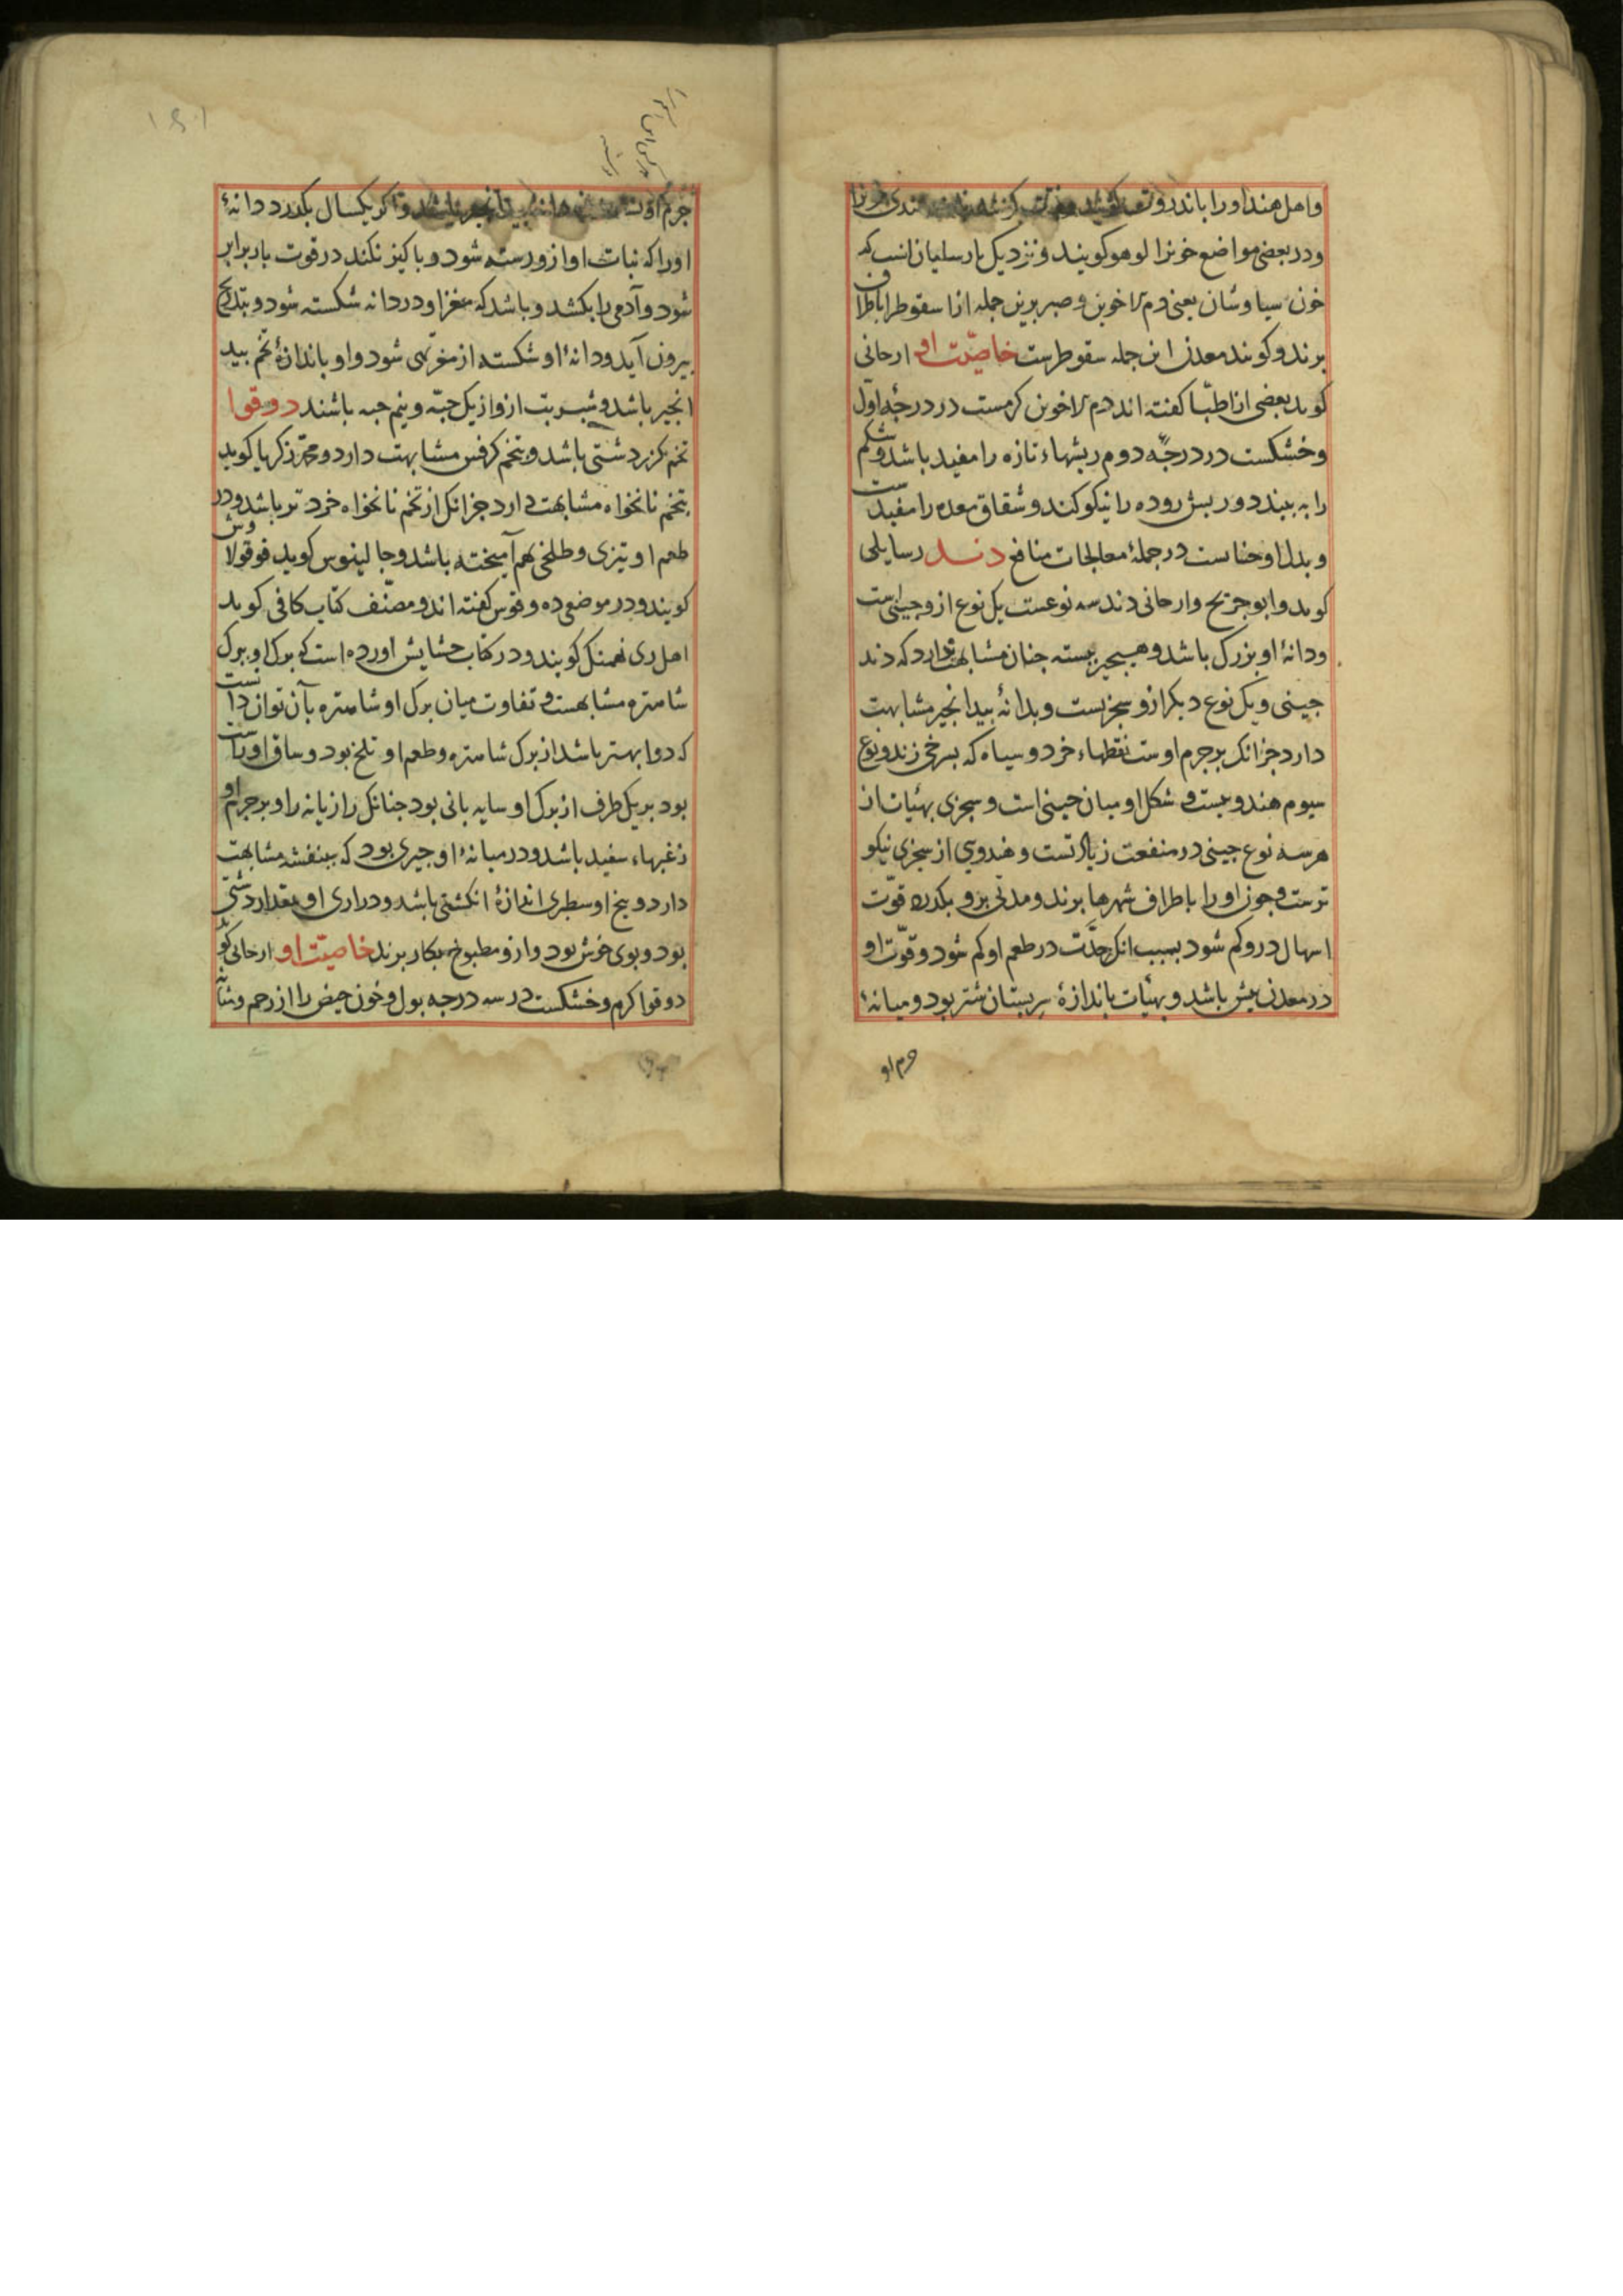 واهل هند اورا باندروت
ودر بعضی مواضع خونرا لوهو کویند ونزدیک پارسلیان انسب که
خون سیاوشان یعنی دم الاخوین وصبر برین جمله از اسقوطرا باطراف
برند وکویند معدن این جمله سقوطرست خاصیّت او ارحانی
کوید بعضی از اطبّا کفته اند دم الاخوین کرمست در درجهٔ اوّل
وخشکست در درجهٔ دوم ریشهاء تازه را مفید باشد وشکم
را به بندد وریش روده را نیکو کند وشقاق معده را مفیدست
وبدل او حناست در جملهٔ معالجات منافع دند رسایلی
کوید وابو جریح وارحانی دند سه نوعست یک نوع ازو چینی است
ودانهٔ او بزرک باشد و ببسته چنان مشابهت دارد که دند
چینی ویک نوع دیکر ازو سجزیست وبدانهٔ بیدانجیر مشابهت
دارد جز انک بر جرم اوست نقطهاء خرد وسیاه که بسرخی زند ونوع
سیوم هندویست و شکل او میان چینی است وسجزی بهیات از
هر سه نوع چینی در منفعت زیادتست وهندوی از سجزی نیکو
ترست وچون اورا باطراف شهرها برند ومدتی برو بکدرد قوّت
اسهال درو کم شود بسبب انک حدّت در طعم او کم شود وقوّت او
در معدن بیش باشد وبهیات باندازهٔ سر پستان شتر بود ومیانهٔ
جرم او
جرم او باشد واکر یکسال بکدرد دانهٔ
اورا که نبات او ازو رسته شود وپاکیز نکند در قوت با برابر
شود وآدمی را بکشد وباشد که مغز او در دانه شکسته شود وبتدریج
بیرون آید ودانهٔ او شکسته از مغز تهی شود واو باندازهٔ تخم بید
انجیر باشد وشربت ازو از یک حبّه ونیم حبه باشند دوقوا
تخم کزر دشتی باشد وبتخم کرفس مشابهت دارد ومحمّد زکریا کوید
بتخم نانخواه مشابهت دارد جز انک از تخم نانخواه خرد تر باشد ودر
طعم او تیزی وطلخی بهم آمیخته باشد وجالینوس کوید فوقولاوش
کویند ودر موضعی ده وفوس کفته اند ومصنّف کتاب کافی کوید
اهل ری نهمنک کویند ودر کتاب حشایش اورده است که برک او ببرک
شاهتره مشابهست و تفاوت میان برک او وشاهتره بآن توان دانست
که دوا بهتر باشد از برک شاهتره وطعم او تلخ بود وساق اوراست
بود بر یک طرف از برک او سایه بانی بود چنانک رازیانه را وبر جرم او
زغبهاء سفید باشد ودر میانهٔ او چیزی بود که ببنفشه مشابهت
دارد وبیخ او سطبری اندازهٔ انکشتی باشد ودرازی او بمقدار دستی
بود وبوی خوش بود وازو مطبوخ بکار برند خاصیّت او ارحانی کوید
دوقوا کرم وخشکست در سه درجه بول وخون حیض را از رحم ومثانه